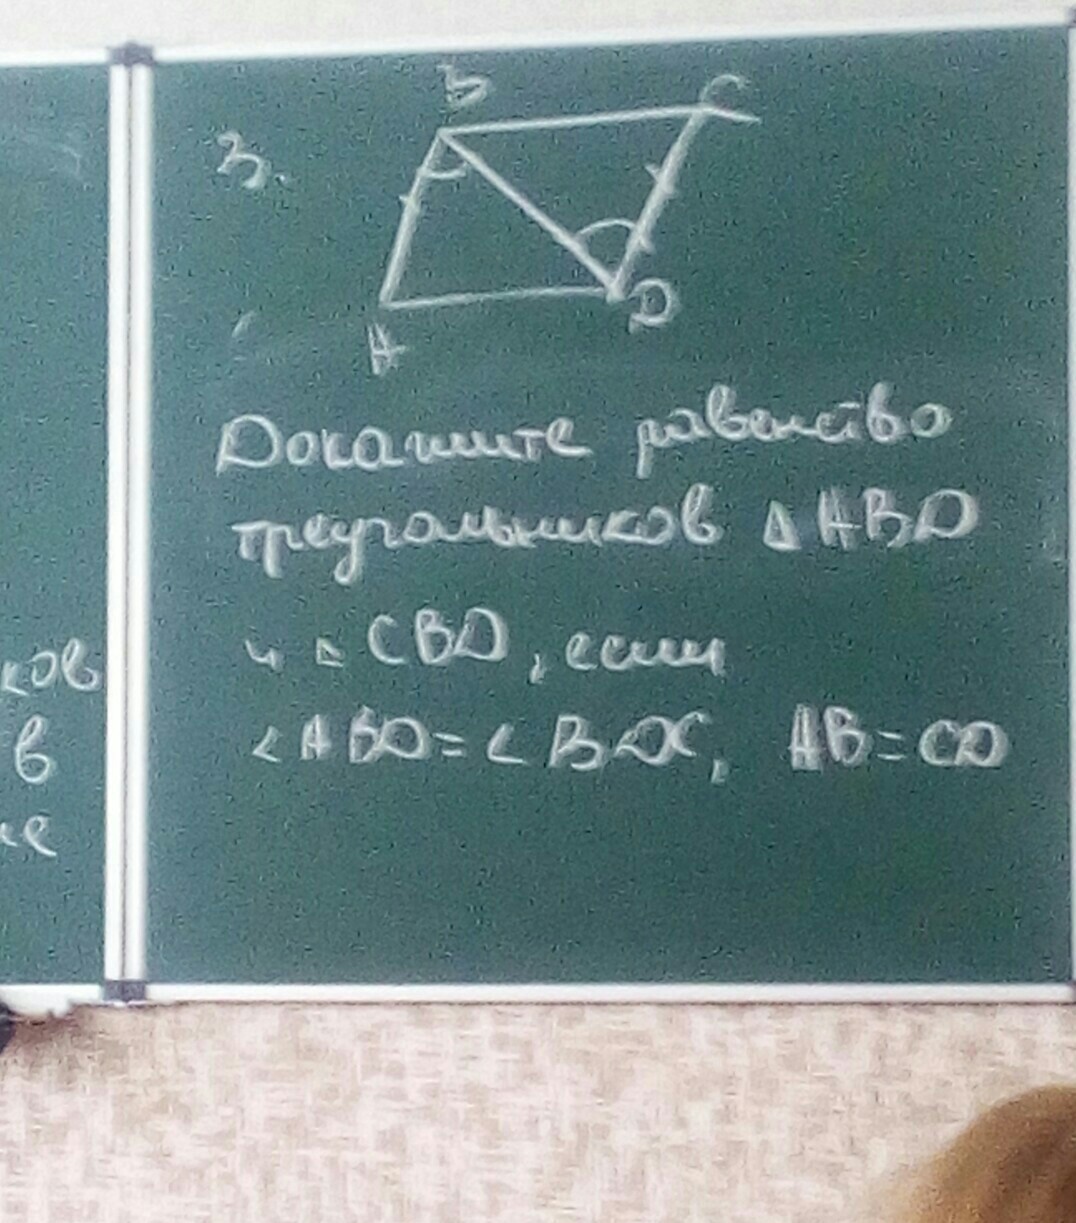 3.
B
C
A
D
Докажите равенство
треугольников △ABD
и △CBD, если
∠ABD=∠BDC, AB=CD
ков
в
ие